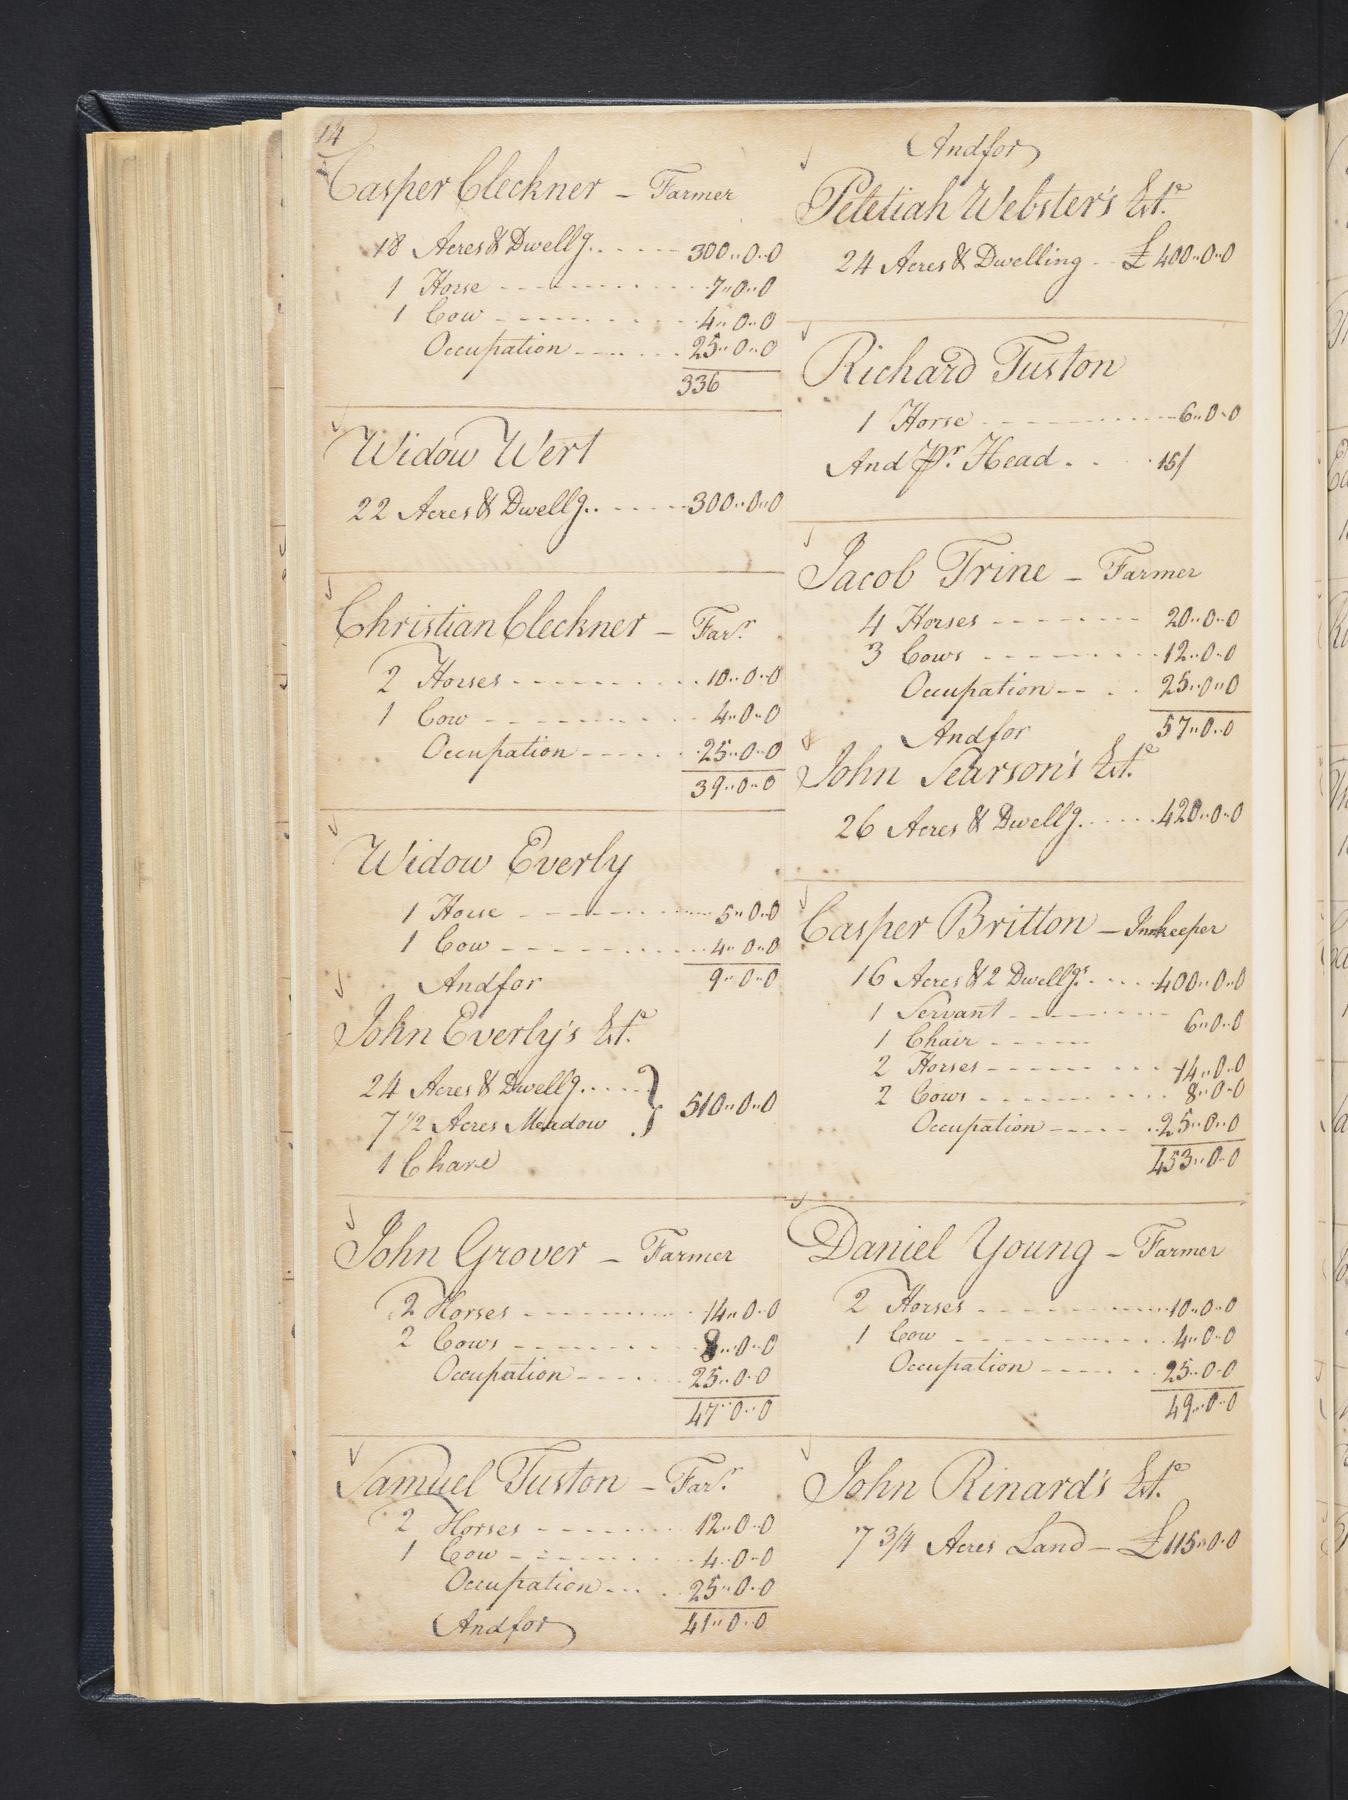 14
Casper Cleckner – Farmer
18 Acres & Dwellg. 300..0..0
1 Horse 7..0..0
1 Cow 4..0..0
Occupation 25..0..0
336
Widow Wert
22 Acres & Dwellg. 300..0..0
Christian Cleckner – Farr.
2 Horses 10..0..0
1 Cow 4..0..0
Occupation 25..0..0
39..0..0
Widow Everly
1 Horse 5..0..0
1 Cow 4..0..0
And for 9..0..0
John Everly's Este.
24 Acres & Dwellg. } 510..0..0
7 1/2 Acres Meadow
1 Chare
John Grover – Farmer
2 Horses 14..0..0
2 Cows 8..0..0
Occupation 25..0..0
47..0..0
Samuel Tuston – Farr.
2 Horses 12..0..0
1 Cow 4..0..0
Occupation 25..0..0
And for 41..0..0
And for
Peletiah Webster's Este.
24 Acres & Dwelling £400..0..0
Richard Tuston
1 Horse 6..0..0
And Pr. Head 15/
Jacob Trine – Farmer
4 Horses 20..0..0
3 Cows 12..0..0
Occupation 25..0..0
And for 57..0..0
John Searson's Este.
26 Acres & Dwellg. 420..0..0
Casper Britton – Innkeeper
16 Acres & 2 Dwellgs. 400..0..0
1 Servant 6..0..0
1 Chair
2 Horses 14..0..0
2 Cows 8..0..0
Occupation 25..0..0
453..0..0
Daniel Young – Farmer
2 Horses 10..0..0
1 Cow 4..0..0
Occupation 25..0..0
49..0..0
John Rinard's Este.
7 3/4 Acres Land – £115..0..0